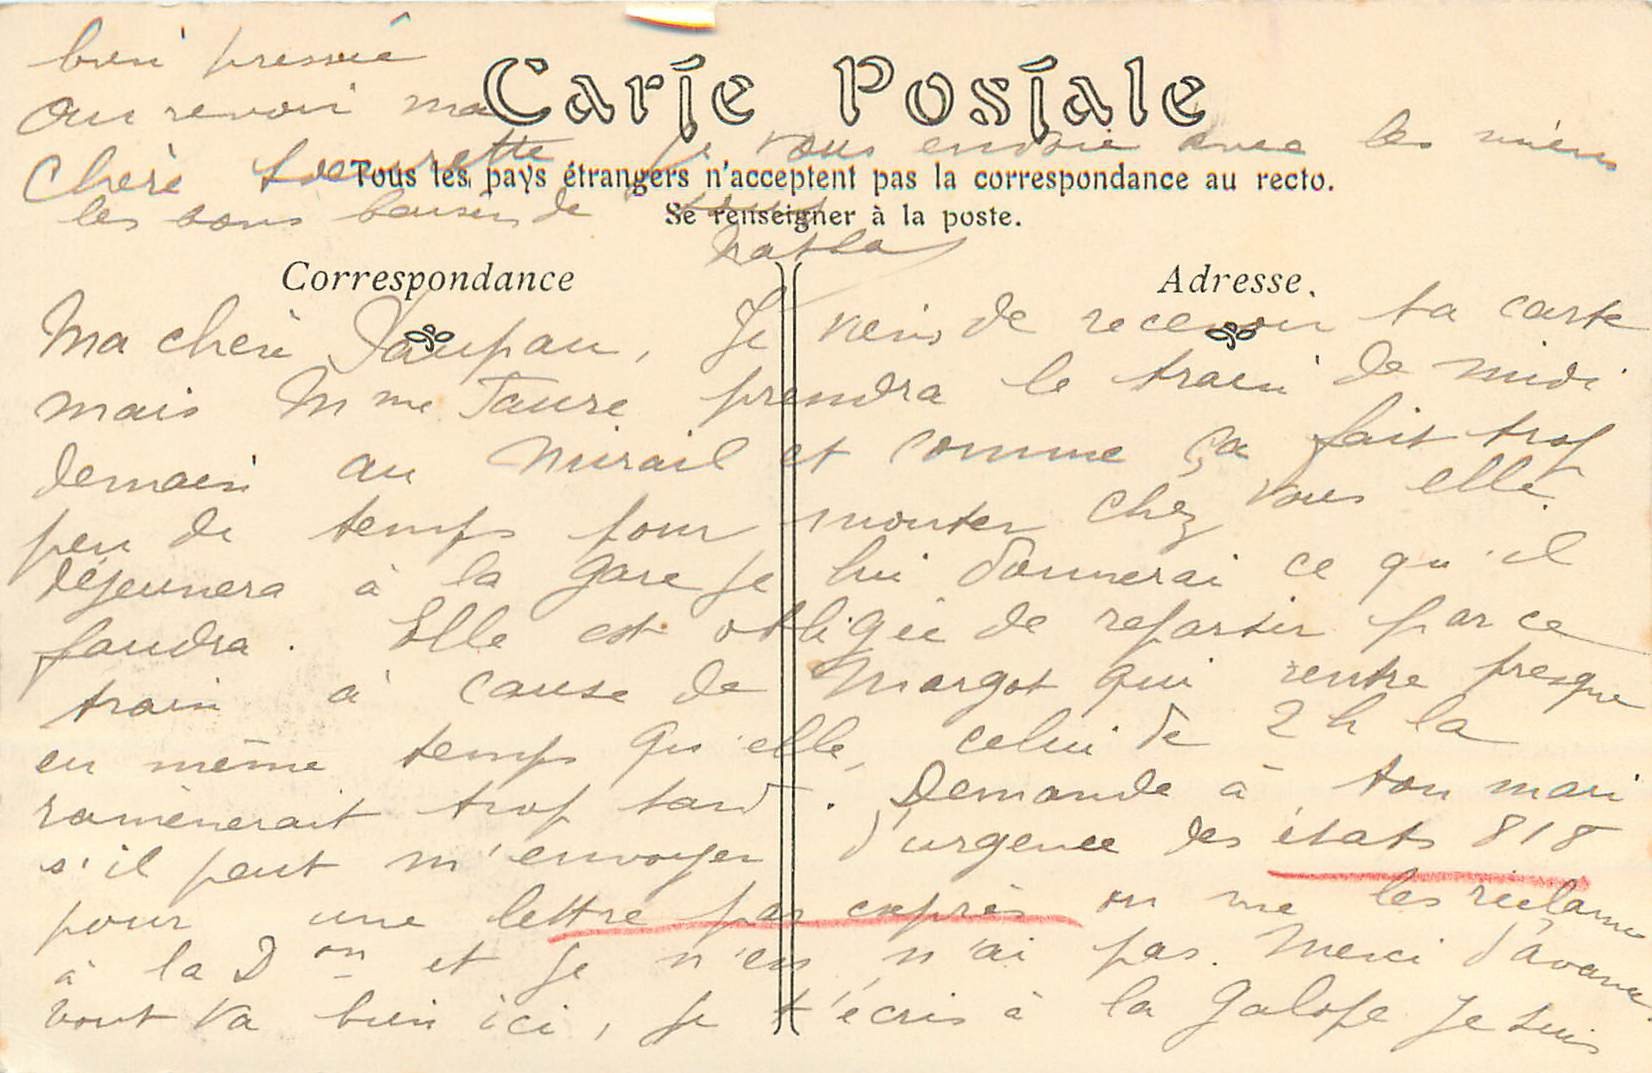 bien pressée
Au revoir ma
Carte Postale
Chère
je vous envoie avec les miens
Tous les pays étrangers n'acceptent pas la correspondance au recto.
les bons baisers de
Se renseigner à la poste.
Correspondance
Adresse.
Ma chère Paupau, Je viens de recevoir ta carte
mais Mme Faure prendra le train de midi
demain au Mirail et comme ça fait trop
peu de temps pour monter chez vous elle
déjeunera à la gare je lui donnerai ce qu'il
faudra. Elle est obligée de repartir par ce
train à cause de Margot qui rentre presque
en même temps qu'elle, celui de 2h la
ramènerait trop tard. Demande à ton mari
s'il peut m'envoyer d'urgence des états 818
pour une lettre par exprès on me les réclame
à la Don et je n'en n'ai pas. Merci d'avance
tout va bien ici, je t'écris à la galope je suis